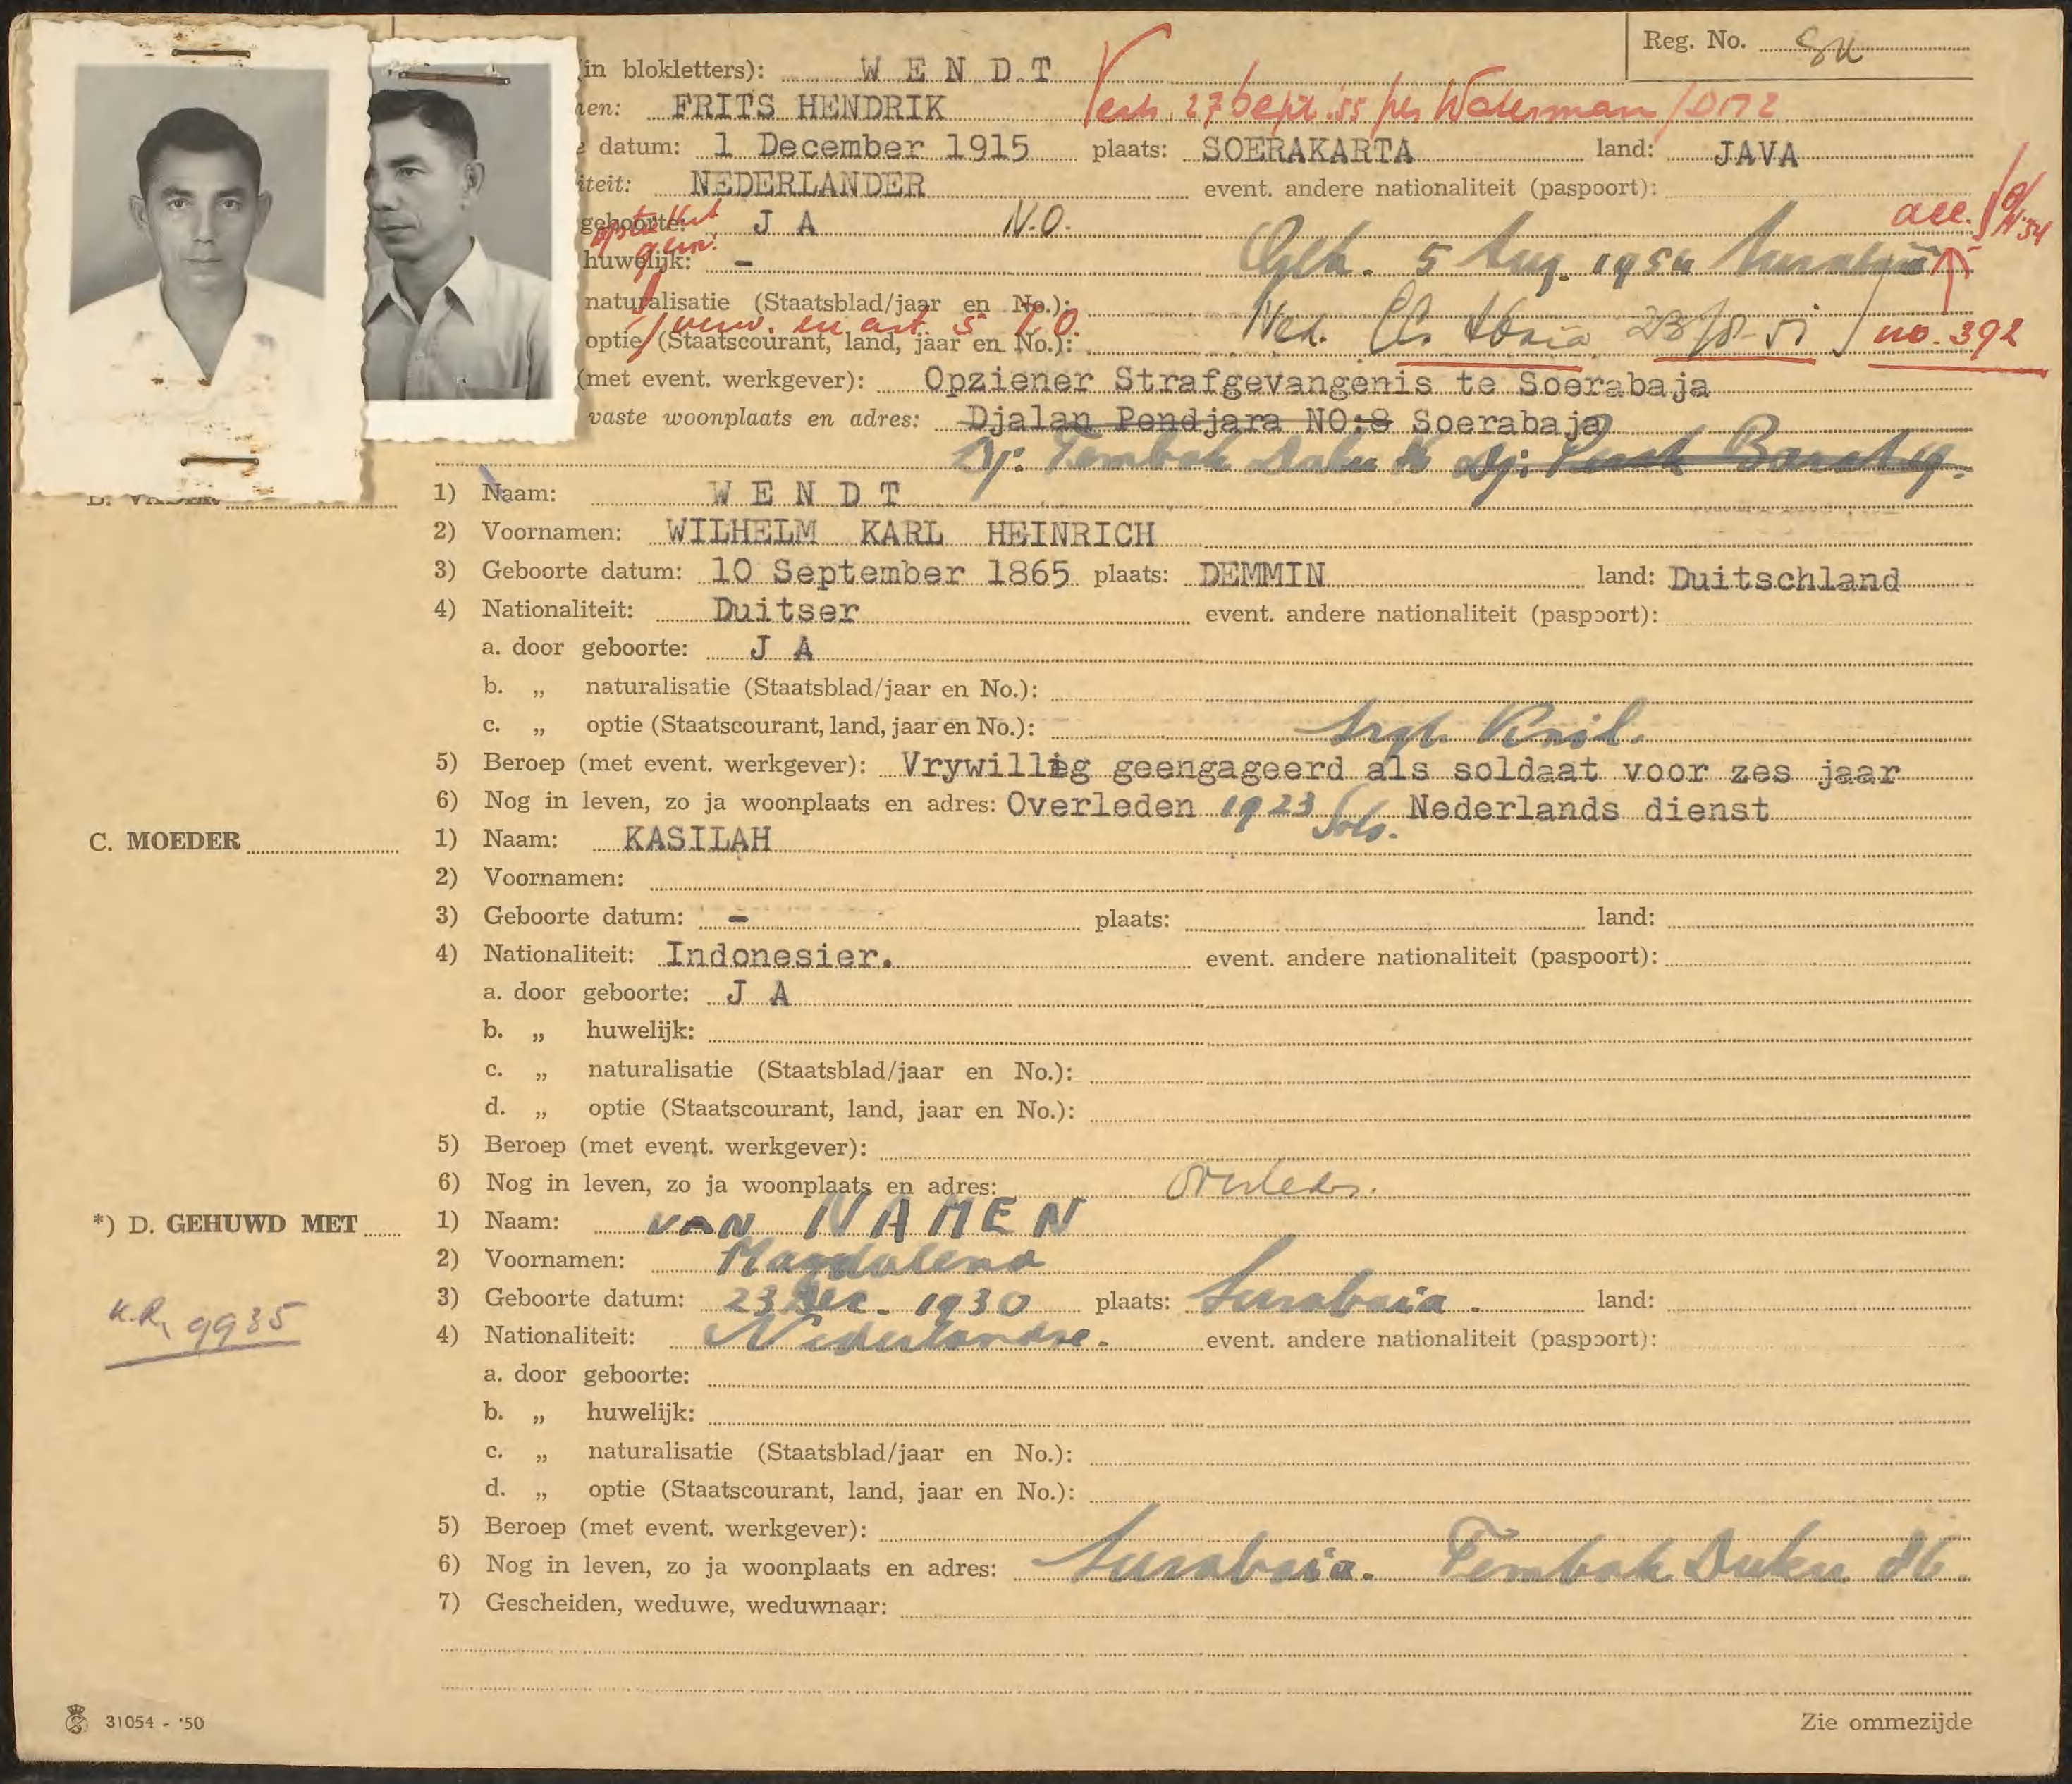 Reg. No. su
(in blokletters): WENDT
en: FRITS HENDRIK
Vertr. 27 Sept. '55 per Waterman / D172
datum: 1 December 1915 plaats: SOERAKARTA land: JAVA
iteit: NEDERLANDER event. andere nationaliteit (paspoort):
geboorte: J A N.O.
acc.
huwelijk: -
Geh. 5 Aug. 1954
naturalisatie (Staatsblad/jaar en No.):
en art. 5 T.O.
Ned. Cls Sbaia 23/8-51 no. 392
optie (Staatscourant, land, jaar en No.):
(met event. werkgever): Opziener Strafgevangenis te Soerabaja
vaste woonplaats en adres: Djalan Pendjara NO:8 Soerabaja
Dj: Tembok Duku Dj: Barat 19.
B. VADER
1) Naam: WENDT
2) Voornamen: WILHELM KARL HEINRICH
3) Geboorte datum: 10 September 1865 plaats: DEMMIN land: Duitschland
4) Nationaliteit: Duitser event. andere nationaliteit (paspoort):
a. door geboorte: J A
b. „ naturalisatie (Staatsblad/jaar en No.):
c. „ optie (Staatscourant, land, jaar en No.):
Srgt. Knil.
5) Beroep (met event. werkgever): Vrywillig geengageerd als soldaat voor zes jaar
6) Nog in leven, zo ja woonplaats en adres: Overleden 1923 Solo. Nederlands dienst
C. MOEDER 1) Naam: KASILAH
2) Voornamen:
3) Geboorte datum: - plaats: land:
4) Nationaliteit: Indonesier. event. andere nationaliteit (paspoort):
a. door geboorte: J A
b. „ huwelijk:
c. „ naturalisatie (Staatsblad/jaar en No.):
d. „ optie (Staatscourant, land, jaar en No.):
5) Beroep (met event. werkgever):
6) Nog in leven, zo ja woonplaats en adres: overleden.
*) D. GEHUWD MET 1) Naam: van NAMEN
2) Voornamen: Magdalena
3) Geboorte datum: 23 Dec. 1930 plaats: Surabaia. land:
K.R. 9935
4) Nationaliteit: Nederlandse. event. andere nationaliteit (paspoort):
a. door geboorte:
b. „ huwelijk:
c. „ naturalisatie (Staatsblad/jaar en No.):
d. „ optie (Staatscourant, land, jaar en No.):
5) Beroep (met event. werkgever):
6) Nog in leven, zo ja woonplaats en adres: Surabaia. Tembok Duku 86.
7) Gescheiden, weduwe, weduwnaar:
31054 - '50
Zie ommezijde